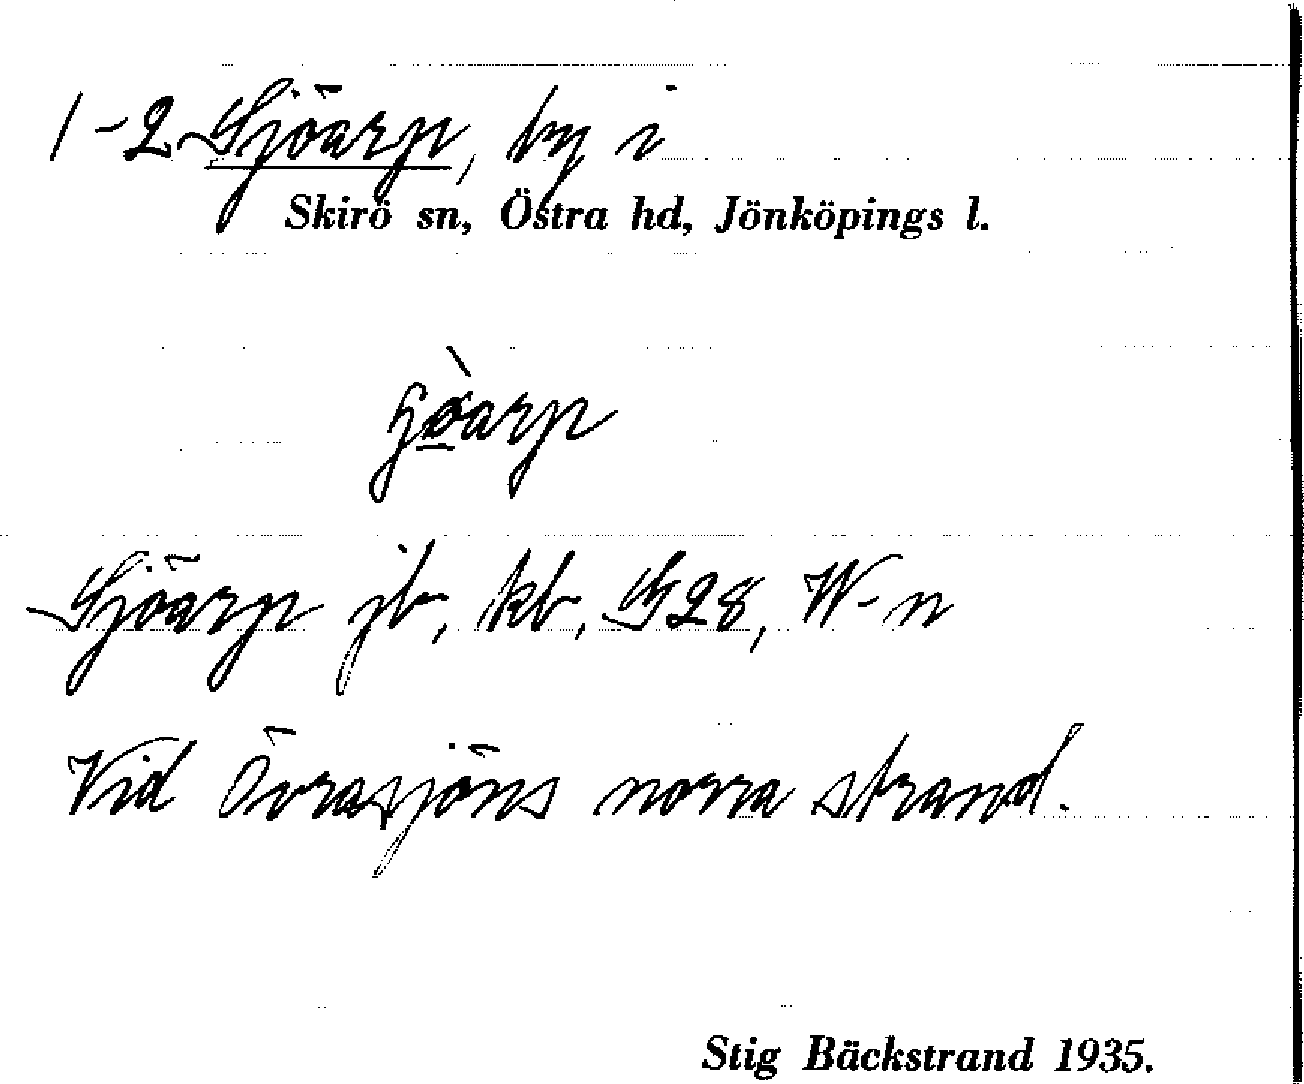 1-2 Sjöarp, by i
Skirö sn, Östra hd, Jönköpings l.
Sjöarp jb, kb, G28, W-n
Vid Övrasjöns norra strand.
Stig Bäckstrand 1935.